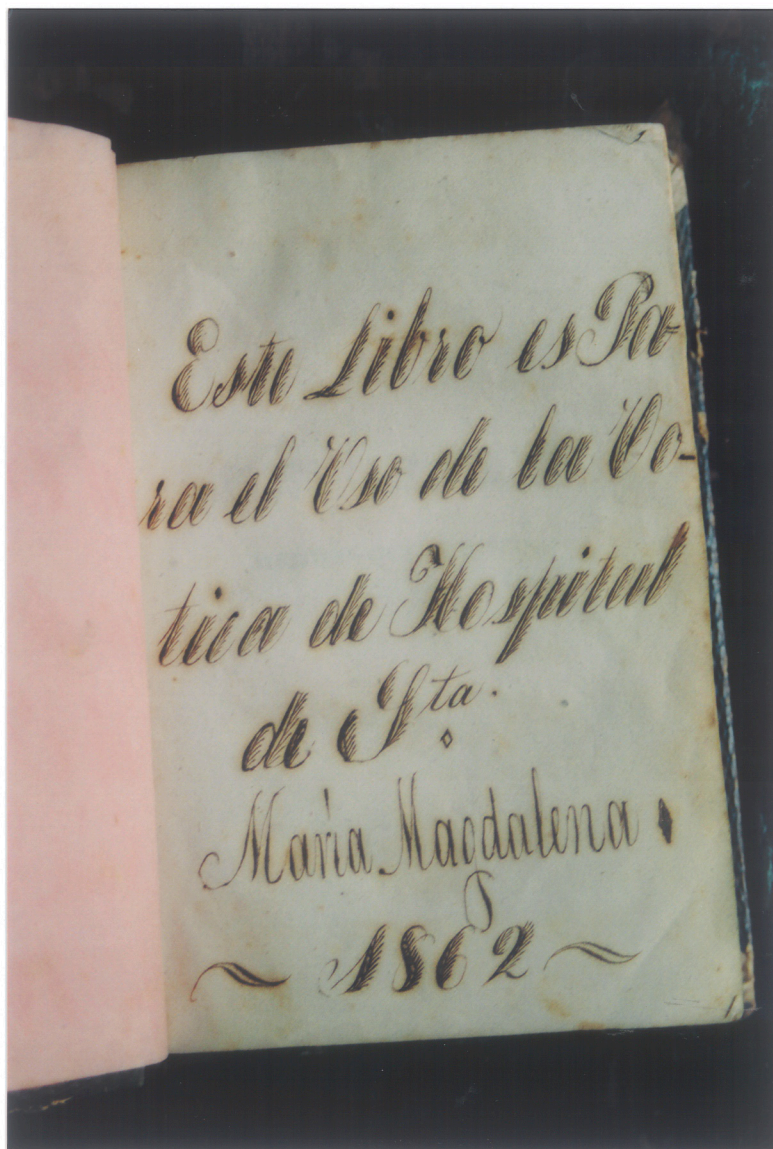 Este Libro es Pa-
ra el Uso de la Bo-
tica de Hospital
de Sta.
María Magdalena
~ 1862 ~